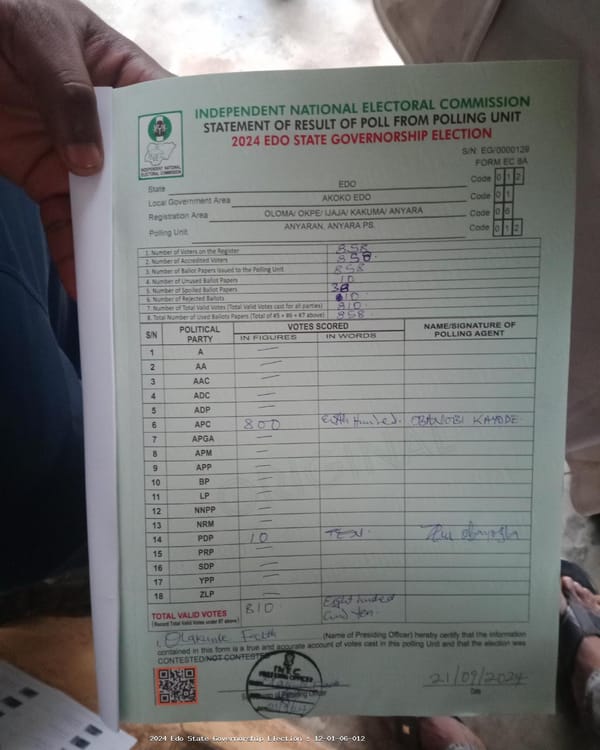 INDEPENDENT NATIONAL ELECTORAL COMMISSION
STATEMENT OF RESULT OF POLL FROM POLLING UNIT
2024 EDO STATE GOVERNORSHIP ELECTION
INEC
INDEPENDENT NATIONAL ELECTORAL COMMISSION
S/N: EG/0000129
FORM EC 8A
State EDO Code 0 1 2
Local Government Area AKOKO EDO Code 0 1
Registration Area OLOMA/ OKPE/ IJAJA/ KAKUMA/ ANYARA Code 0 6
Polling Unit ANYARAN, ANYARA PS. Code 0 1 2
1. Number of Voters on the Register 858
2. Number of Accredited Voters 858
3. Number of Ballot Papers Issued to the Polling Unit 858
4. Number of Unused Ballot Papers 10
5. Number of Spoiled Ballot Papers 38
6. Number of Rejected Ballots 10
7. Number of Total Valid Votes (Total Valid Votes cast for all parties) 810
8. Total Number of Used Ballots Papers (Total of #5 + #6 + #7 above) 858
S/N POLITICAL PARTY VOTES SCORED NAME/SIGNATURE OF POLLING AGENT
IN FIGURES IN WORDS
1 A —
2 AA —
3 AAC —
4 ADC —
5 ADP —
6 APC 800 Eigth Hundred. OBANOBI KAYODE
7 APGA —
8 APM —
9 APP —
10 BP —
11 LP —
12 NNPP —
13 NRM —
14 PDP 10 TEN.
15 PRP —
16 SDP —
17 YPP —
18 ZLP —
TOTAL VALID VOTES 810 Eight hundred and ten.
(Record Total Valid Votes under #7 above)
I, Olakunle Faith (Name of Presiding Officer) hereby certify that the information
contained in this form is a true and accurate account of votes cast in this polling Unit and that the election was
CONTESTED/NOT CONTESTED
INEC
PRESIDING OFFICER
21/09/2024
Date
2024 Edo State Governorship Election : 12-01-06-012